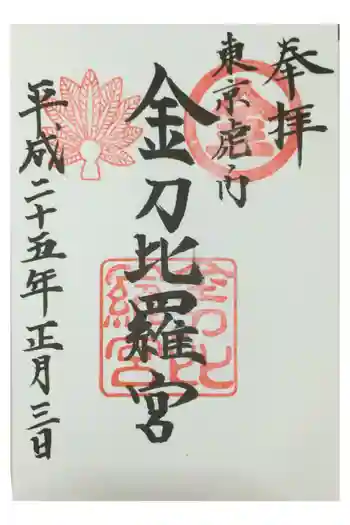 奉拝
東京虎ノ門
金
金刀比羅宮
金刀比
羅宮
平成二十五年正月三日